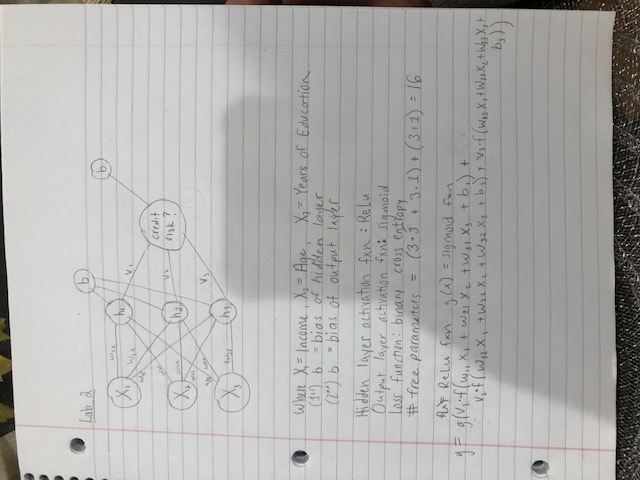 Lab 2
b
b
X₁
h₁
V₁
credit
risk?
X₂
h₂
V₂
X₃
h₃
V₃
Where X₁ = Income, X₂ = Age, X₃ = Years of Education
(1st) b = bias of hidden layer
(2nd) b = bias of output layer
Hidden layer activation fxn : ReLu
Output layer activation fxn: sigmoid
Loss function: binary cross entropy
# free parameters = (3·3 + 3·1) + (3+1) = 16
f(x)= ReLu fxn g(x) = sigmoid fxn
y = g(V₁·f(W₁₁X₁ + W₂₁X₂ + W₃₁X₃ + b₁) +
V₂·f(W₁₂X₁ + W₂₂X₂ + W₃₂X₃ + b₂) + V₃·f(W₁₃X₁+W₂₃X₂+W₃₃X₃+
b₃))